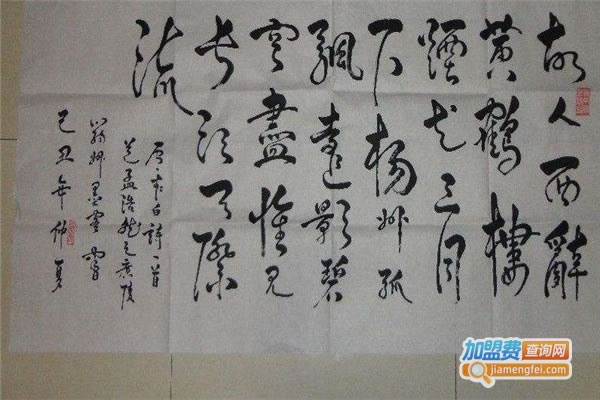 故人西辭
黄鶴樓
煙花三月
下楊州孤
帆遠影碧
空盡惟見
長江天際
流
李白詩一首
送孟浩然之廣陵
己丑年仲夏
加盟费查询网
jiamengfei.com